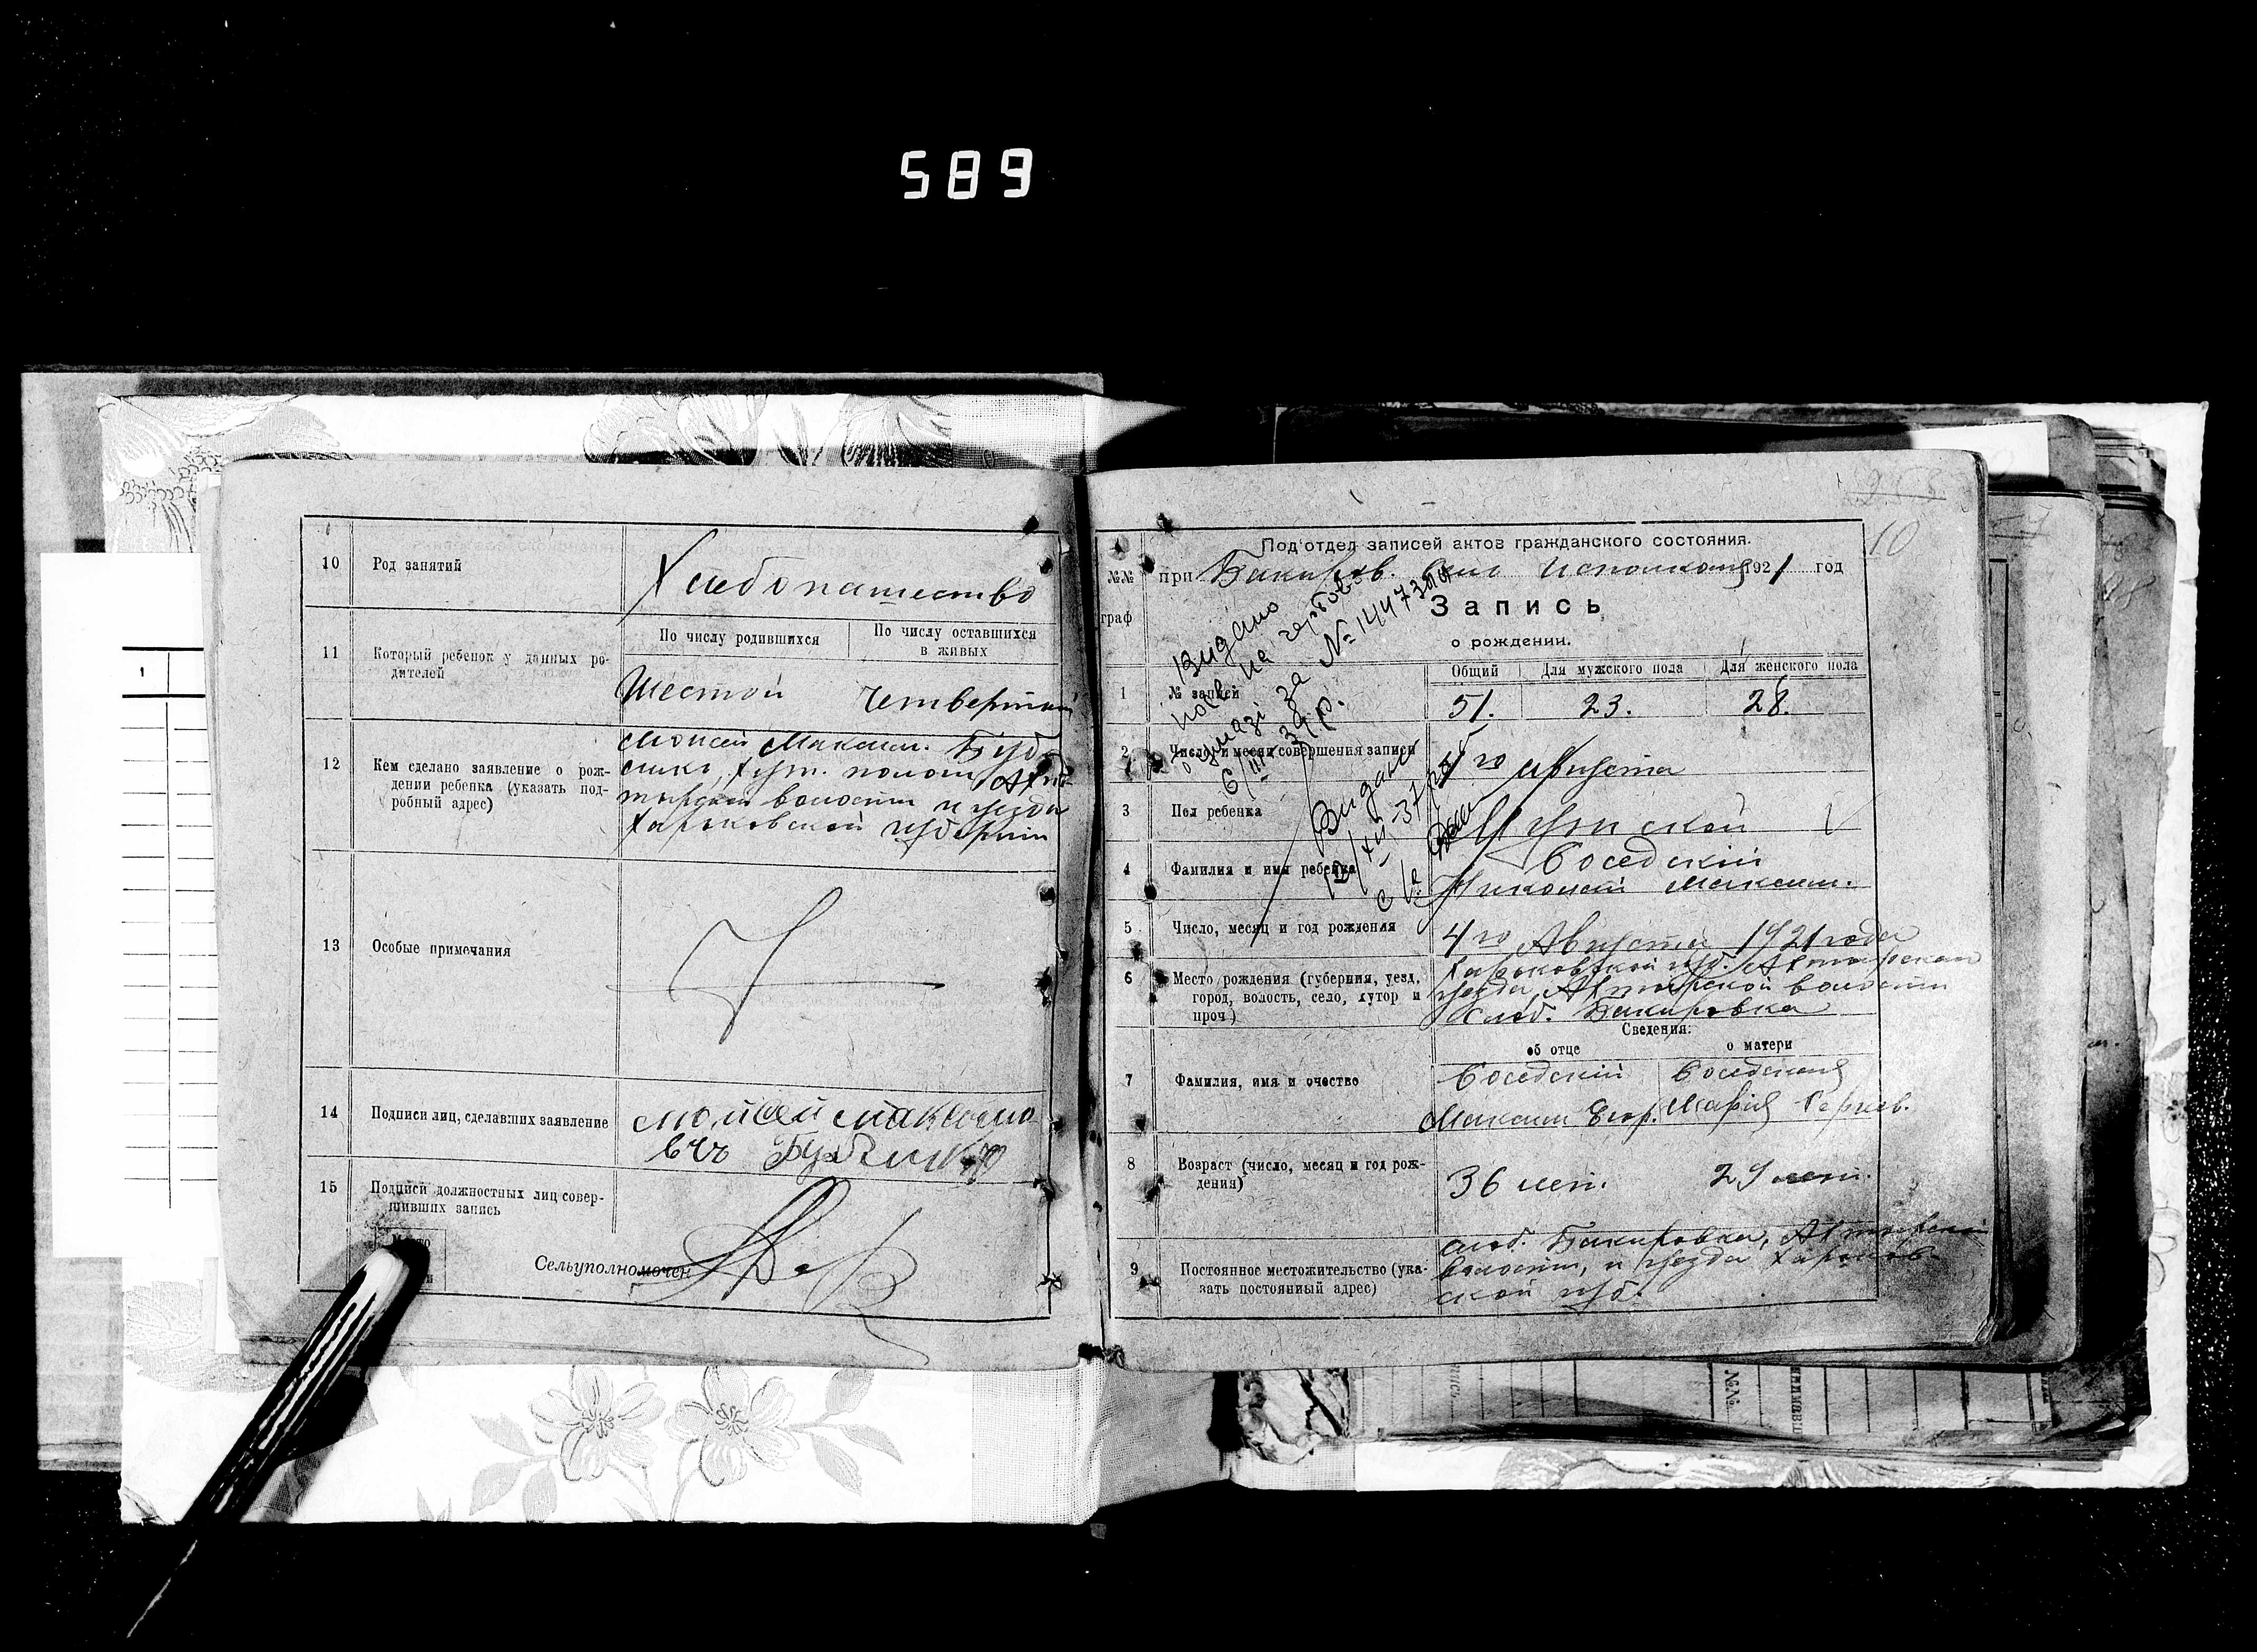 589
10 Род занятий
Хлебопашество
11 Который ребенок у данных ро-
дителей
По числу родившихся
По числу оставшихся
в живых
Шестой
Четвертый
12 Кем сделано заявление о рож-
дении ребенка (указать под-
робный адрес)
Моисей Максим.
волости и уезда
Харьковской губернии
13 Особые примечания
14 Подписи лиц, сделавших заявление
15 Подписи должностных лиц совер-
шивших запись
Место
Сельуполномочен
10
№№
граф
Под'отдел записей актов гражданского состояния.
при Бакиров. исполкоме 1921 год
Запись
о рождении.
Общий
Для мужского пола
Для женского пола
1 № записи
51.
23.
28.
Видано
на
за № 144730
6/III 39 р.
Видано
2 Число и месяц совершения записи
Августа
3 Пол ребенка
Мужской
4 Фамилия и имя ребенка
Соседский
Николай Максим.
5 Число, месяц и год рождения
4го Августа 1921 года
6 Место рождения (губерния, уезд,
город, волость, село, хутор и
проч)
Харьковской губ. Ахтырскаго
уезда, Ахтырской волости
слоб. Бакировка
Сведения:
об отце
о матери
7 Фамилия, имя и очество
Соседский
Соседская
Максим Егор.
Мария Сергеев.
8 Возраст (число, месяц и год рож-
дения)
36 лет.
29 лет.
9 Постоянное местожительство (ука-
зать постоянный адрес)
слоб. Бакировка, Ахтырской
волости, и уезда Харьков-
ской губ.